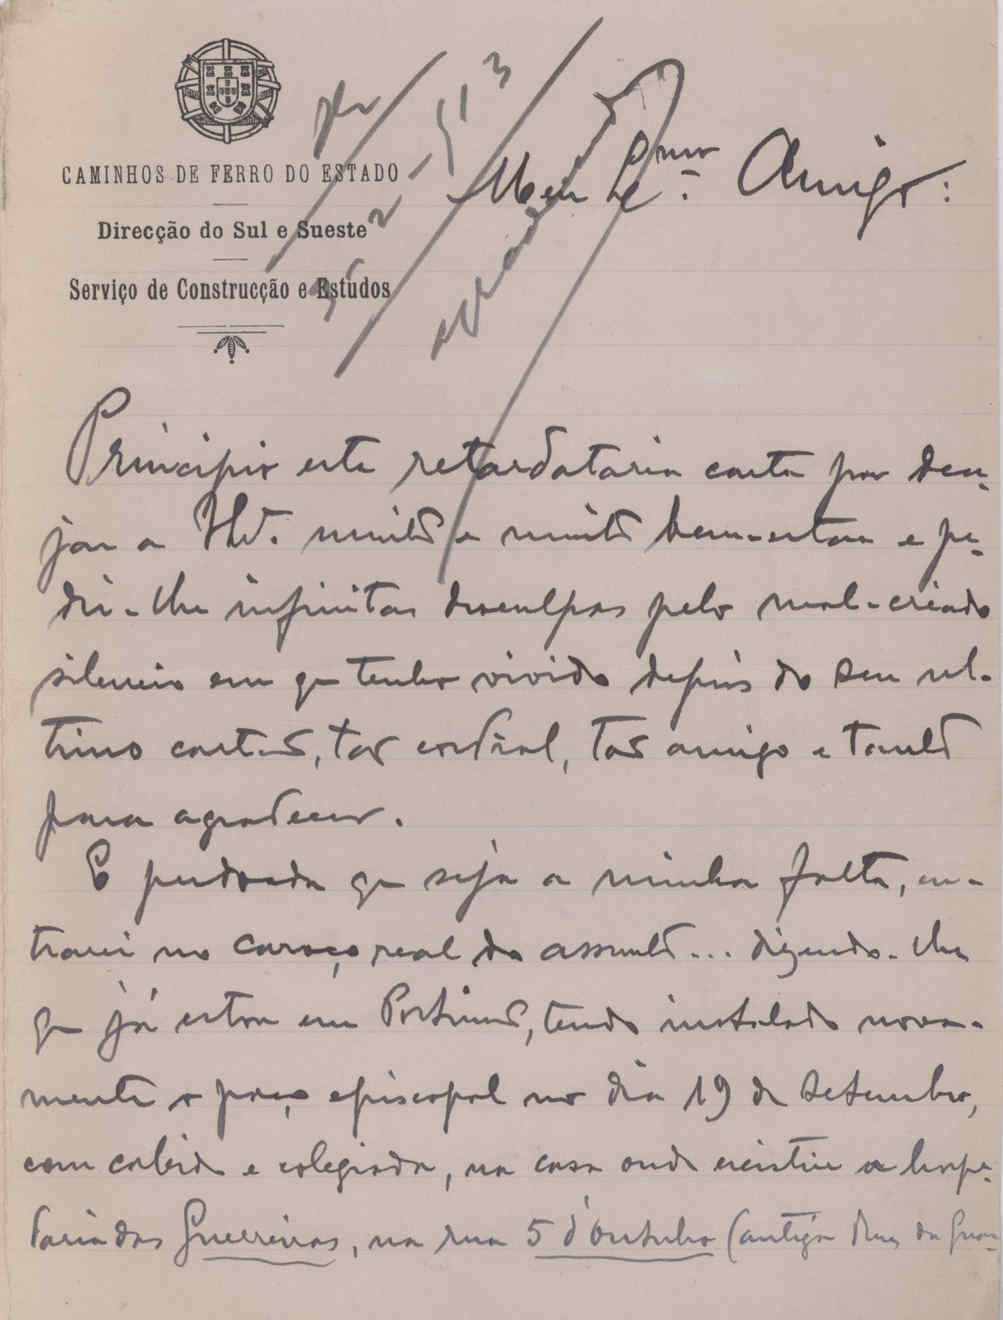 CAMINHOS DE FERRO DO ESTADO
Direcção do Sul e Sueste
Serviço de Construcção e Estudos
Meu Amigo:
Principio esta retardataria carta por dese-
jar a muito e muito bem-estar e pe-
dir-lhe infinitas desculpas pelo mal-creado
silencio em que tenho vivido depois do seu ul-
timo cartão, tão cordial, tão amigo e tanto
para agradecer.
E perdoada que seja a minha falta, en-
trarei no caroço real do assunto... dizendo-lhe
que já estou em Portimão, tendo instalado nova-
mente o paço episcopal no dia 19 de Setembro,
com cabido e colegiada, na casa onde existiu a hospe-
daria das Guerreiras, na rua 5 d'Outubro (antiga Rua da Guar-